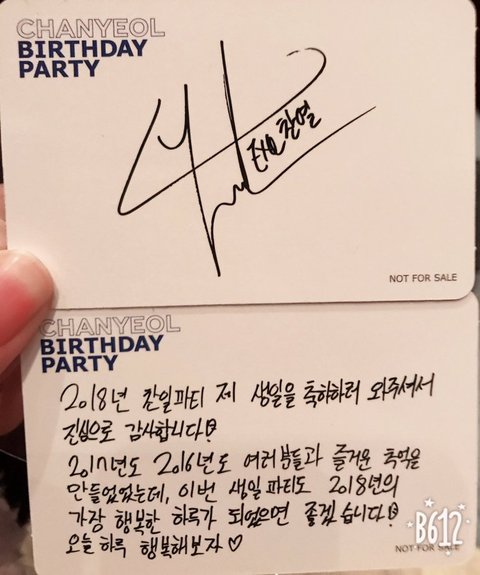 CHANYEOL
BIRTHDAY
PARTY
찬열
NOT FOR SALE
CHANYEOL
BIRTHDAY
PARTY
2018년 찬일파티 제 생일을 축하하러 와주셔서
진심으로 감사합니다!
2017년도 2016년도 여러분들과 즐거운 추억을
만들었었는데, 이번 생일파티도 2018년의
가장 행복한 하루가 되었으면 좋겠습니다!
오늘 하루 행복해보자♡
NOT FOR SALE
B612